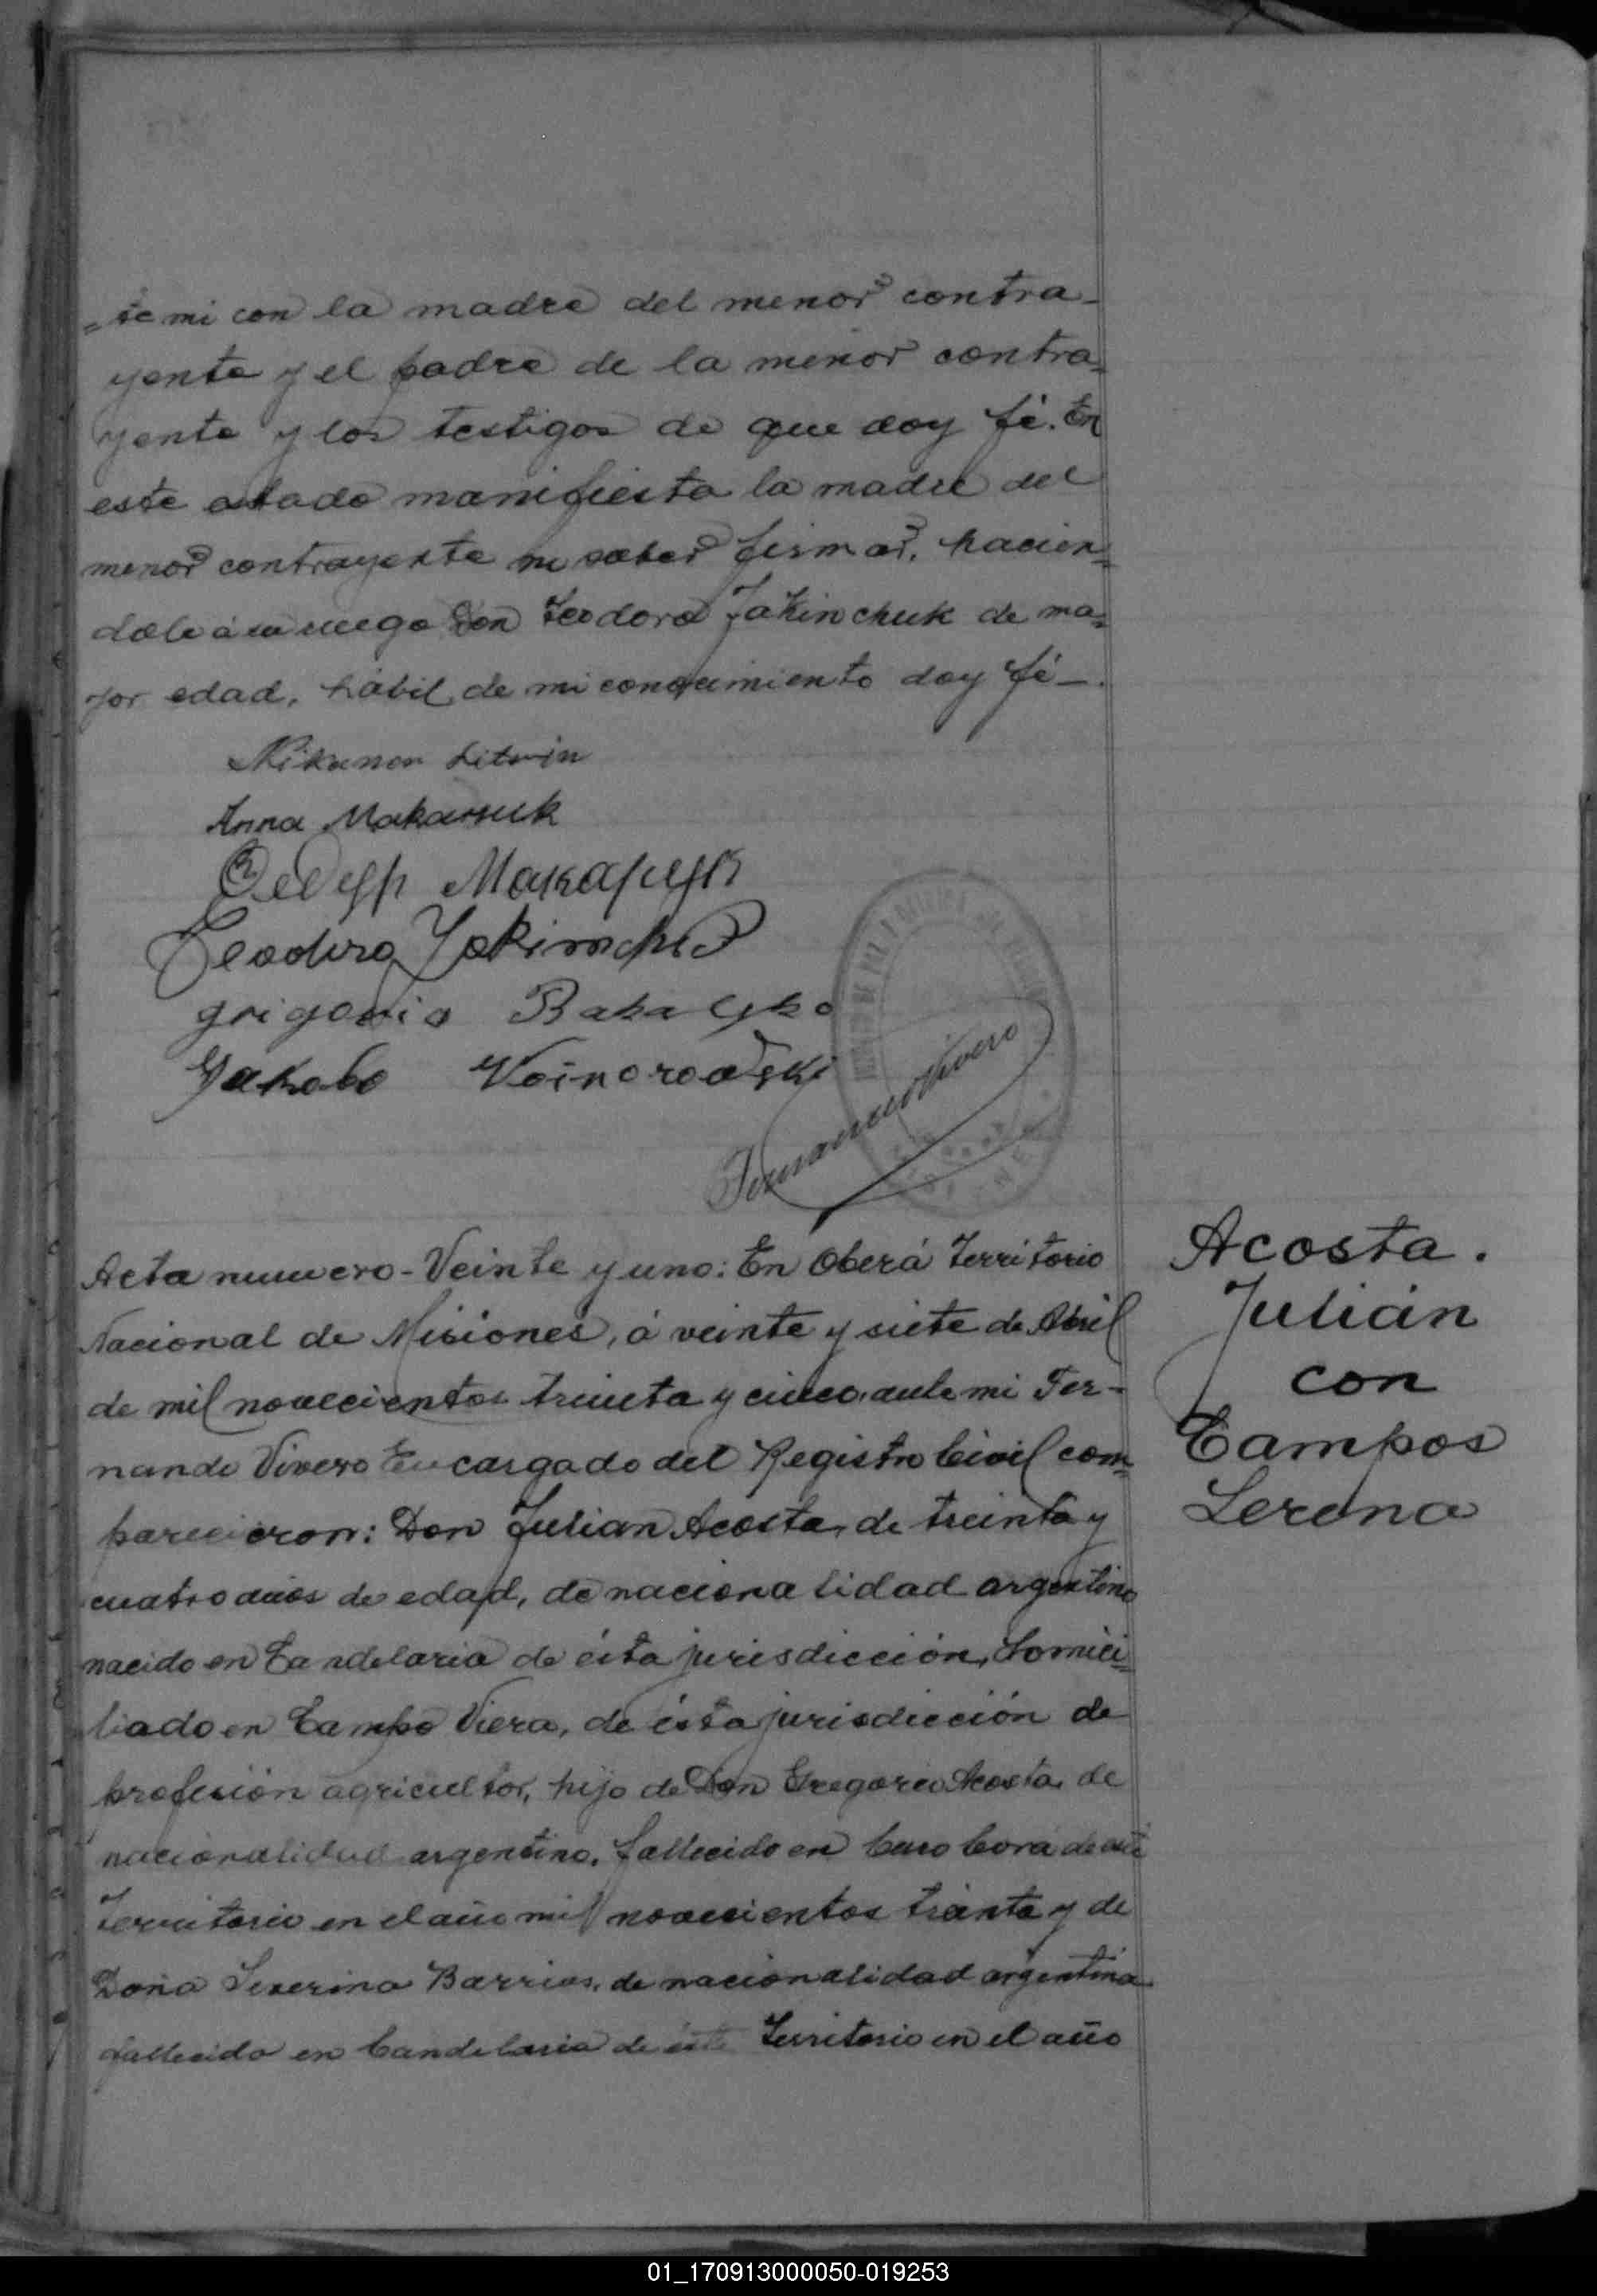 =te mi con la madre del menor contra-
yente y el padre de la menor contra=
yente y los testigos de que doy fé. En
este estado manifiesta la madre del
menor contrayente no saber firmar, hacien=
dolo á su ruego Don Teodoro Jakinchuk de ma=
yor edad, hábil, de mi conocimiento doy fé-.
Nikanor Litwin
Anna Makarsuk
Макарук
Teodoro Jakimchuk
grigorio
Jakobo Woinorowski
Fernando Vivero
Acta numero-Veinte y uno: En Oberá Territorio
Nacional de Misiones, á veinte y siete de Abril
de mil novecientos treinta y cinco, ante mi Fer-
nando Vivero Encargado del Registro Civil com=
parecieron: Don Julian Acosta, de treinta y
cuatro años de edad, de nacionalidad argentino
nacido en Candelaria de ésta jurisdicción, domici=
liado en Campo Viera, de ésta jurisdicción de
profesión agricultor, hijo de Don Gregorio Acosta, de
nacionalidad argentino, fallecido en Cerro Corá de este
Territorio en el año mil novecientos treinta y de
Doña Severina Barrios, de nacionalidad argentina
fallecido en Candelaria de este Territorio en el año
Acosta.
Julián
con
Campos
Lerena
01_170913000050-019253